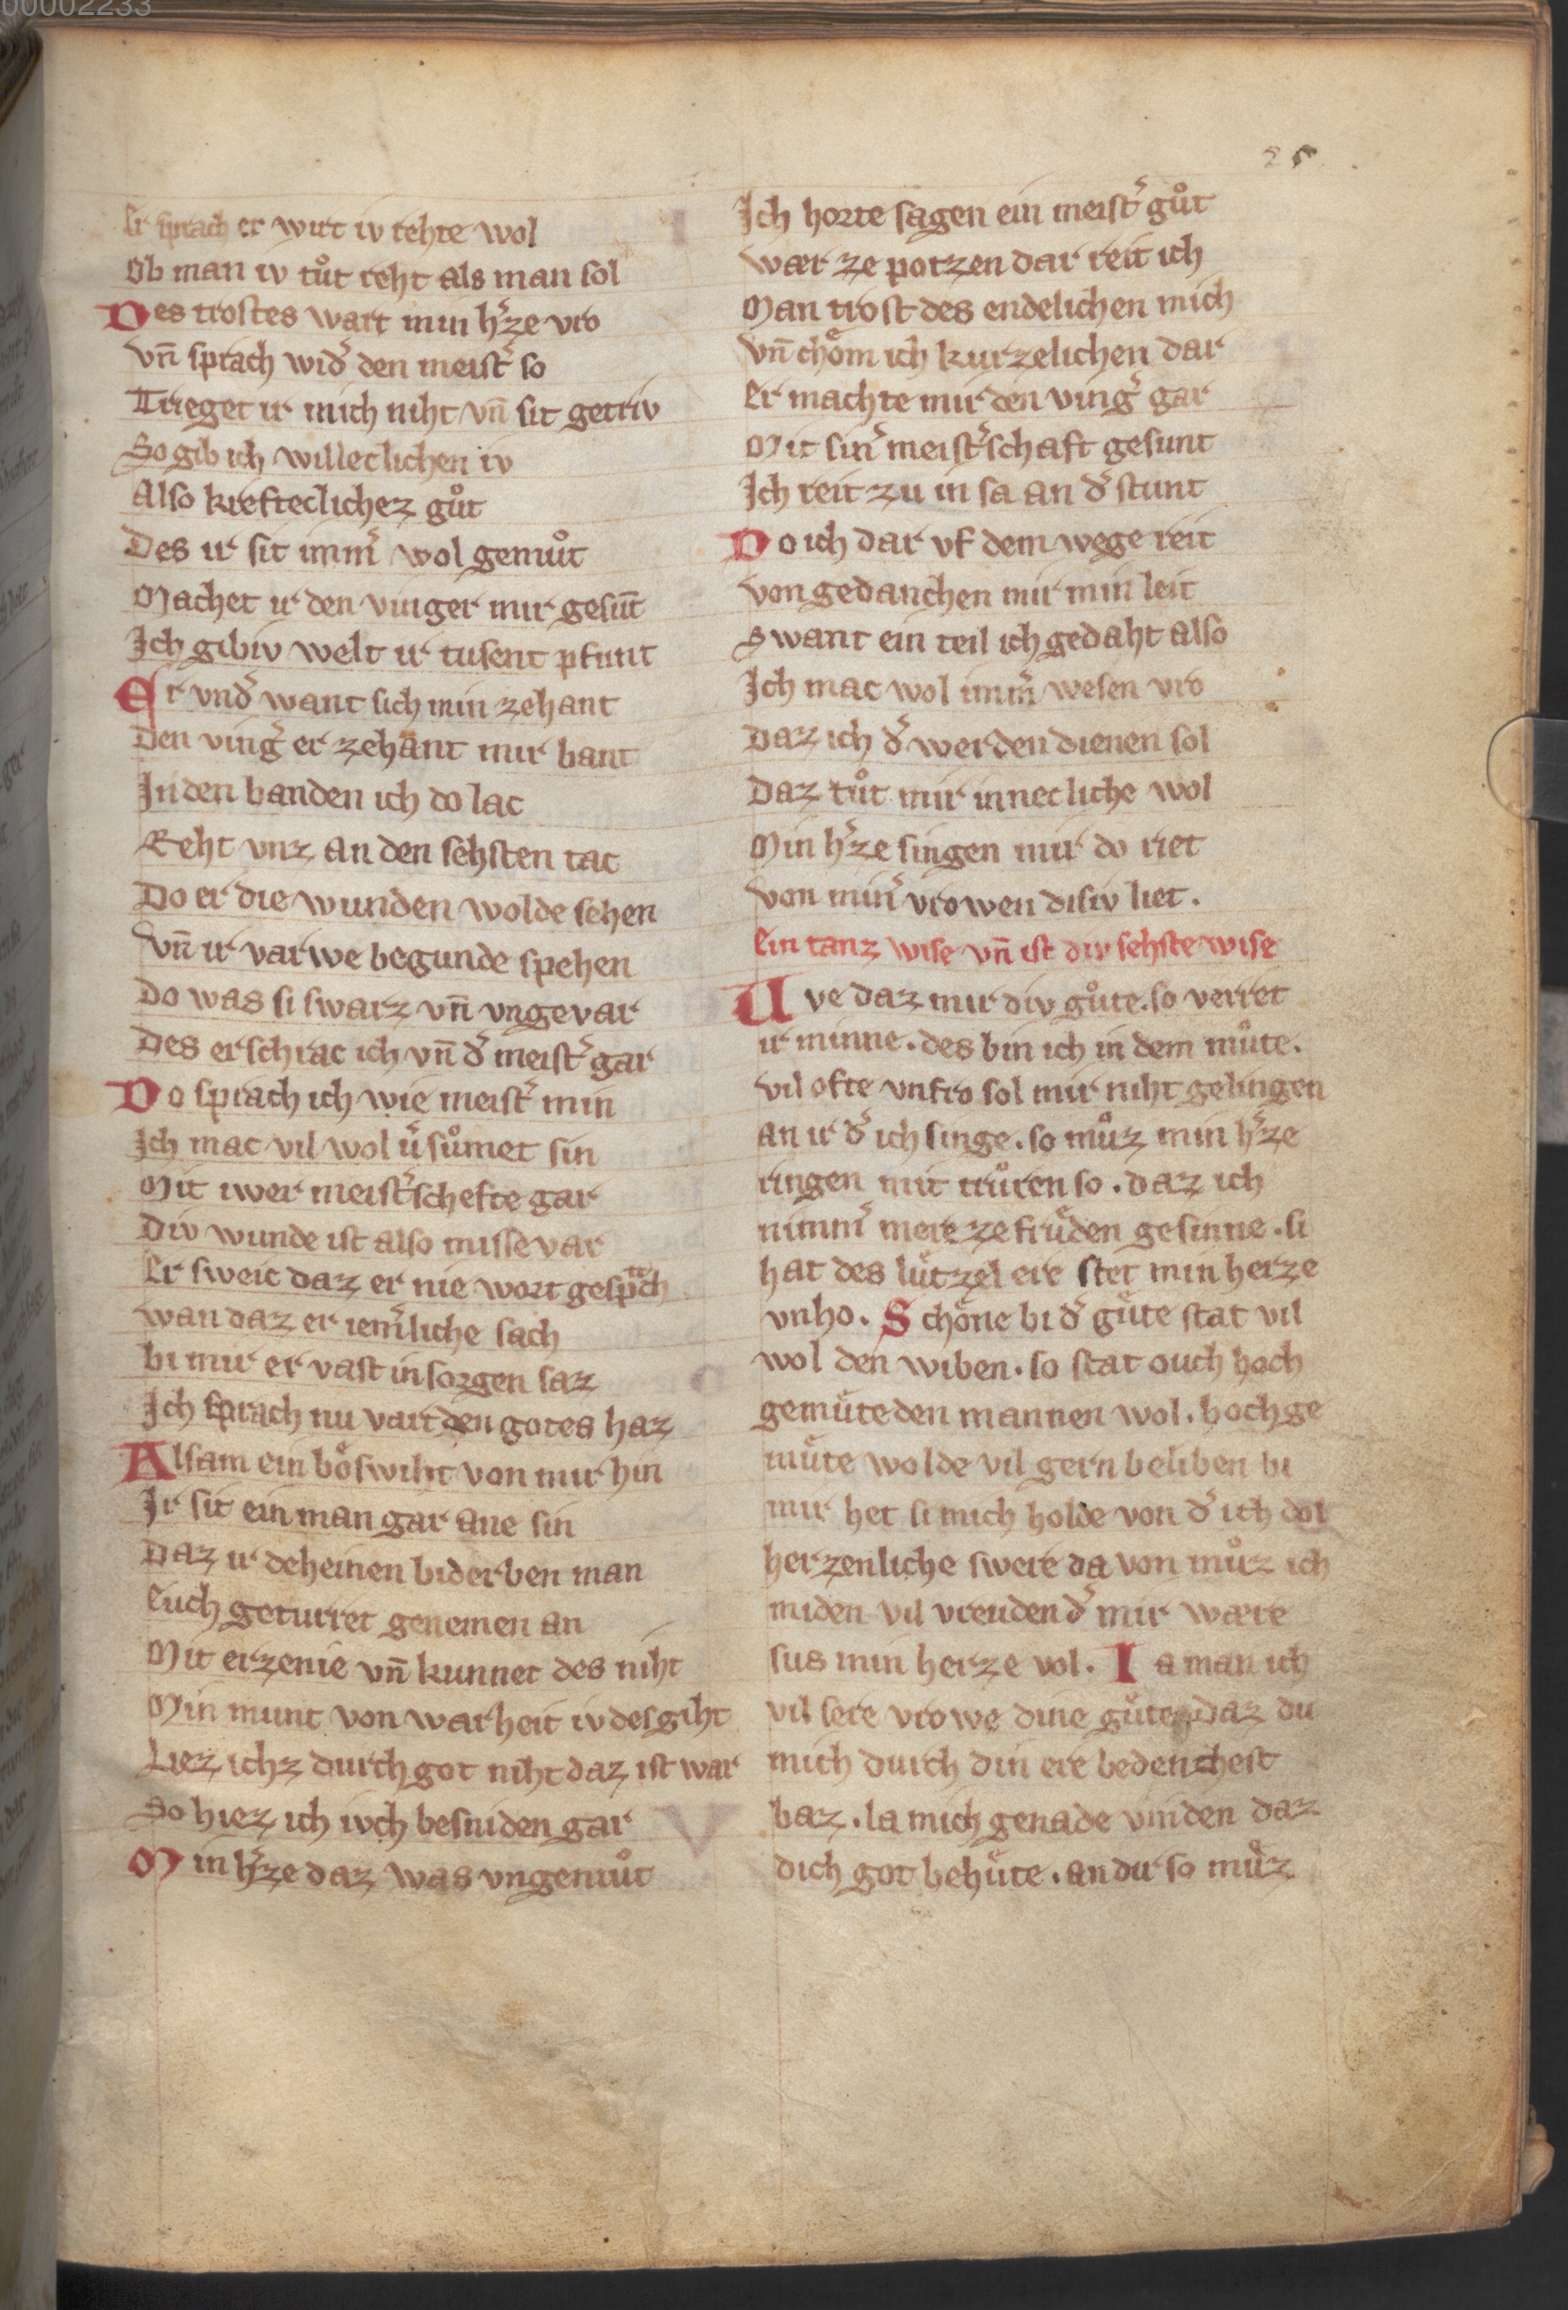 00002233
25
Er sprach er wirt iv rehte wol
Ob man iv tůt reht als man sol
Des trostes wart min h͛ze vro
Vn̄ sprach wid͛ den meist͛ so
Trieget ir mich niht vn̄ sit getriv
So gib ich willeclichen iv
Also krefteclichez gůt
Des ir sit imm͛ wol gemůt
Machet ir den vinger mir gesūt
Ich gib iv welt ir tusent pfunt
Er vnd͛ want sich min zehant
Den ving͛ er zehant mir bant
In den banden ich do lac
Reht vnz an den sehsten tac
Do er die wunden wolde sehen
Vn̄ ir varwe begunde spehen
Do was si swarz vn̄ vngevar
Des erschrac ich vn̄ d͛ meist͛ gar
Do sprach ich wie meist͛ min
Ich mac vil wol v͛sůmet sin
Mit iwer meist͛schefte gar
Div wunde ist also missevar
Er sweic daz er nie wort gesprach
wan daz er iem͛liche sach
bi mir er vast in sorgen saz
Ich sprach nu vart den gotes haz
Alsam ein bȯ̈swiht von mir hin
Ir sit ein man gar ane sin
Daz ir deheinen biderben man
Euch geturret genemen an
Mit erzenie vn̄ kunnet des niht
Min munt von warheit iv des giht
Liez ichz durch got niht daz ist war
So hiez ich ivch besniden gar
Min h͛ze daz was vngemůt
Ich horte sagen ein meist͛ gůt
wær ze potzen dar reit ich
Man trost des endelichen mich
Vn̄ chȯ̈m ich kurzelichen dar
Er machte mir den ving͛ gar
Mit sin͛ meist͛schaft gesunt
Ich reit zu in sa an d͛ stunt
Do ich dar vf dem wege reit
von gedanchen mir min leit
Swant ein teil ich gedaht also
Ich mac wol imm͛ wesen vro
Daz ich d͛ werden dienen sol
Daz tůt mir innecliche wol
Min h͛ze singen mir do riet
von min͛ vrowen disiv liet.
Ein tanz wise vn̄ ist div sehste wise
Uve daz mir div gůte. so verret
ir minne. des bin ich in dem můte.
vil ofte vnfro sol mir niht gelingen
an ir d͛ ich singe. so můz min h͛ze
ringen mit trůren so. daz ich
nimm͛ mere ze frůden gesinne. si
hat des lůtzel ere stet min herze
vnho. Schöne bi d͛ gůte stat vil
wol den wiben. so stat ouch hoch
gemůte den mannen wol. hochge
můte wolde vil gern beliben bi
mir het si mich holde von d͛ ich dol
herzenliche swere da von můz ich
miden vil vreuden d͛ mir wære
sus min herze vol. Ia man ich
vil sere vrowe dine gůte Daz du
mich durch din ere bedenchest
baz. la mich genade vinden daz
dich got behůte. an dir so můz